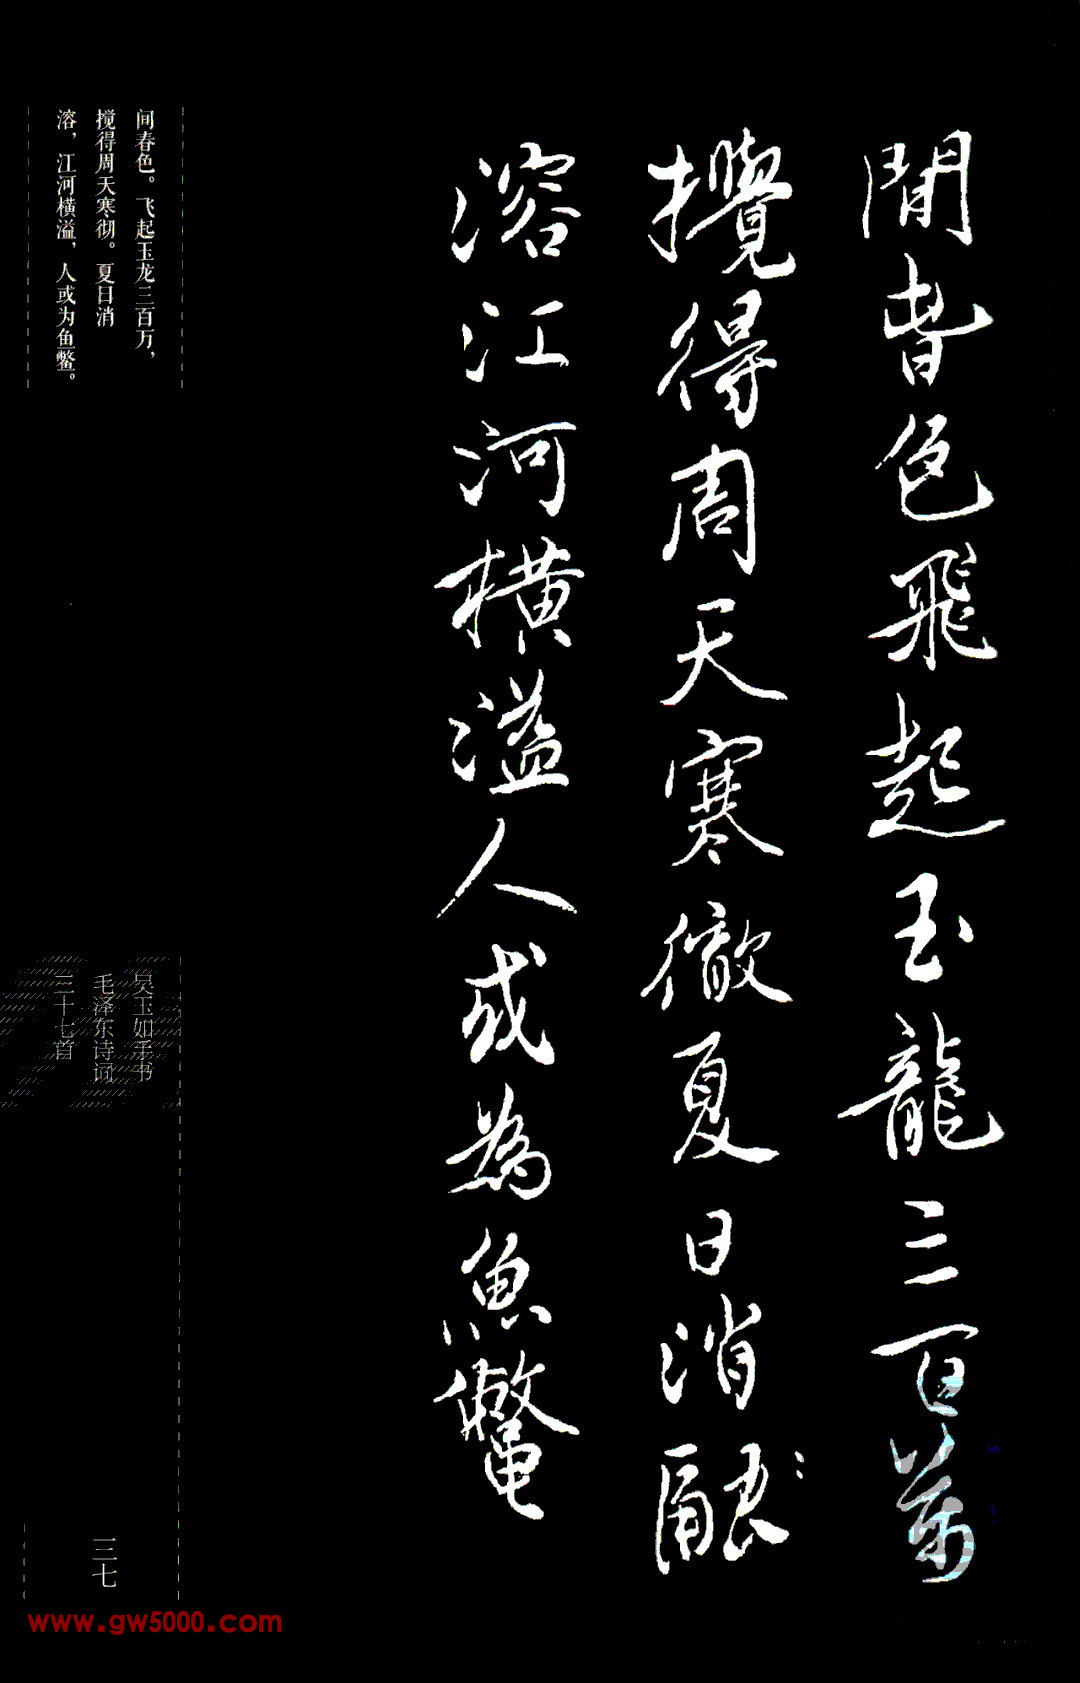 間春色飛起玉龍三百萬
攪得周天寒徹夏日消融
溶江河橫溢人或為魚鼈
间春色。飞起玉龙三百万，
搅得周天寒彻。夏日消
溶，江河横溢，人或为鱼鳖。
吴玉如手书
毛泽东诗词
三十七首
一三七
www.gw5000.com